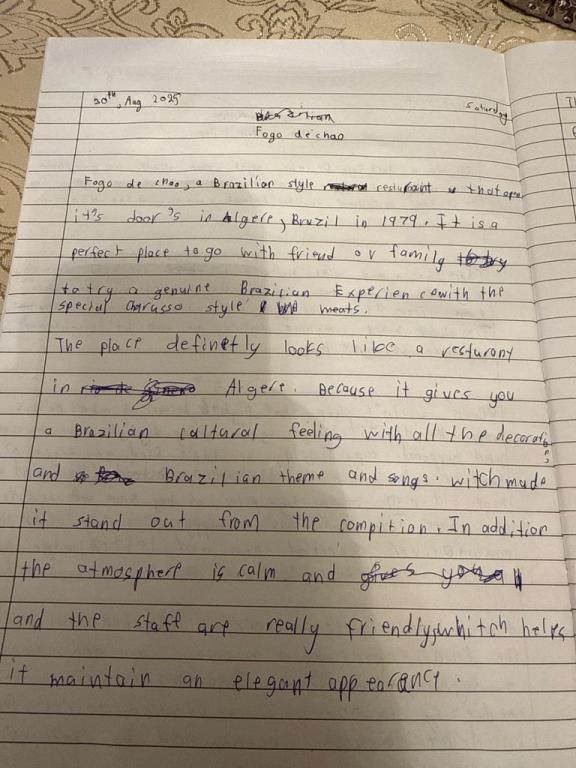 30th, Aug 2025 Saturday
Fogo de chao
Fogo de chao, a Brazilian style resturaint that open
it's door's in Algere, Brazil in 1979. It is a
perfect place to go with friend or family
to try a genuine Brazilian Experience with the
special churusso style meats.
The place definetly looks like a resturony
in Algere. Because it gives you
a Brazilian caltural feeling with all the decoratio
and Brazilian theme and songs. witch made
it stand out from the compition. In addition
the atmosphere is calm and
and the staff are really friendly, whitch helps
it maintain an elegant appearance.